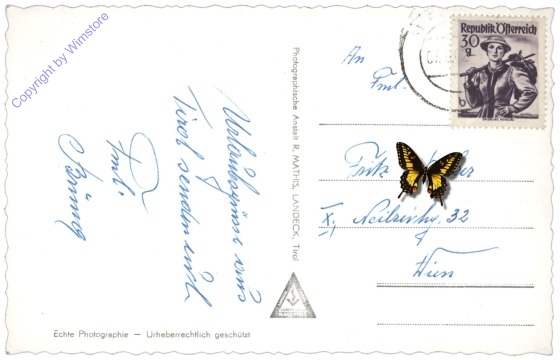 Copyright by Wimstore
Urlaubsgrüsse aus
Tirol sendet euch
Fml.
Photographische Anstalt R. MATHIS, LANDECK, Tirol
Echte Photographie – Urheberrechtlich geschützt
Republik Österreich
30
g
An
Fml.
Fritz
X,
32
Wien